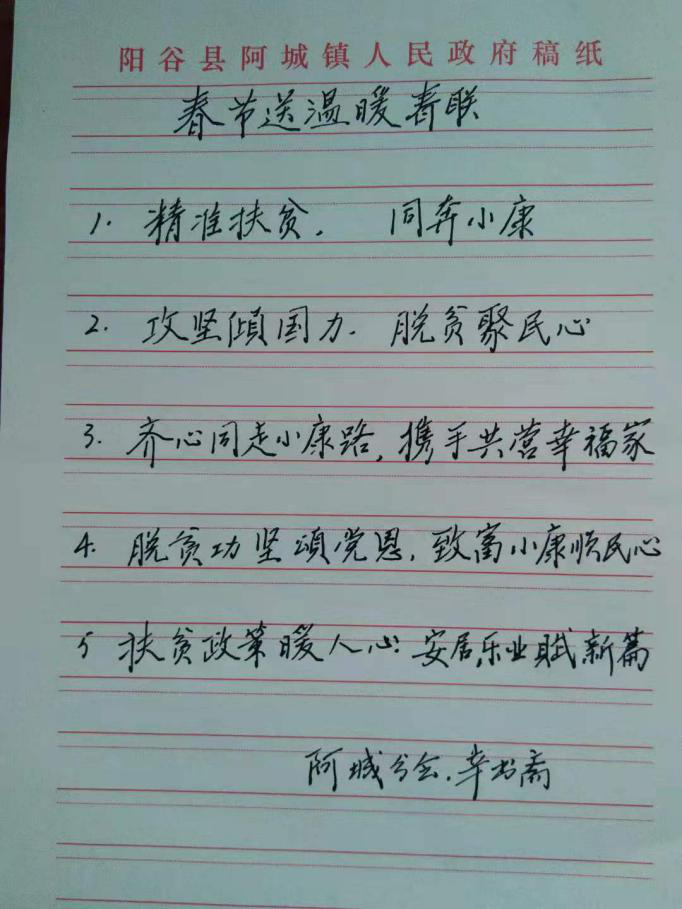 阳谷县阿城镇人民政府稿纸
春节送温暖春联
1. 精准扶贫. 同奔小康
2. 攻坚倾国力. 脱贫聚民心
3. 齐心同走小康路, 携手共营幸福家
4. 脱贫功坚颂党恩, 致富小康顺民心
5 扶贫政策暖人心: 安居乐业赋新篇
阿城分会. 幸书斋